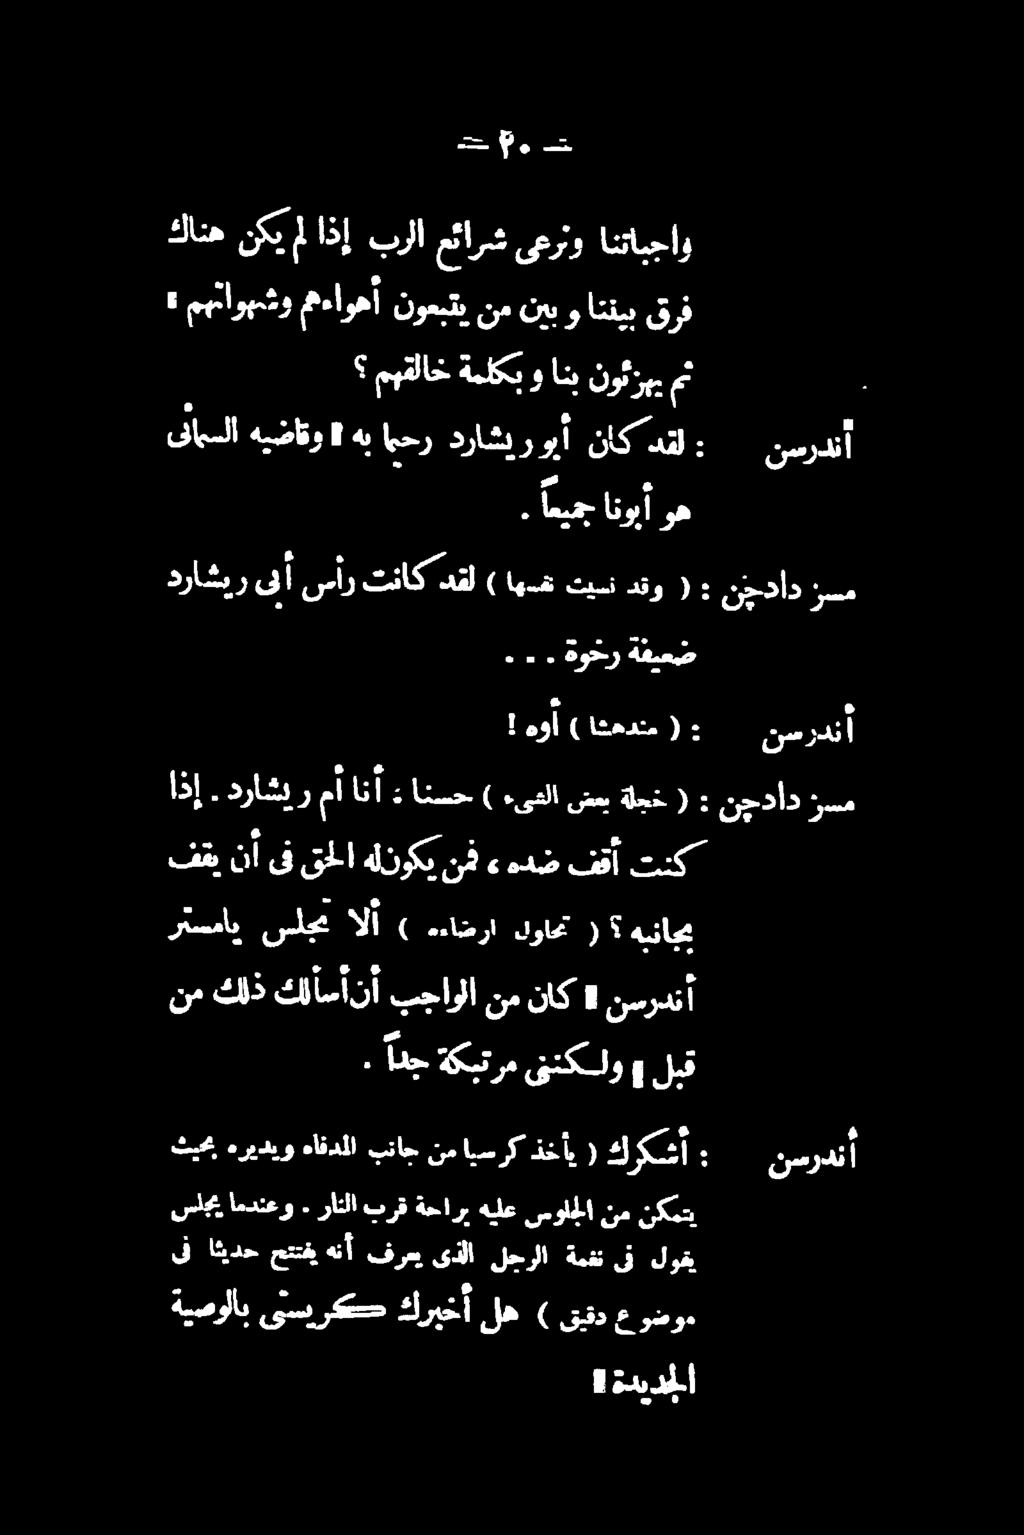 — ٢٠ —
واجباتنا ونرعى شرائع الرب إذا لم يكن هناك
فرق بيننا وبين من يتبعون أهواءهم وشهواتهم ؛
ثم يهزئون بنا وبكلمة خالقهم ؟
أندرسن : لقد كان أبو ريشارد رحيما به ؛ وقاضيه السمائى
هو أبونا جميعاً .
مسز دادچن : ( وقد نسيت نفسها ) لقد كانت رأس أبى ريشارد
ضعيفة رخوة . . .
أندرسن : ( مندهشا ) أوه !
مسز دادچن : ( خجلة بعض الشىء ) حسنا ؛ أنا أم ريشارد . إذا
كنت أقف ضده ، فمن يكون له الحق فى أن يقف
بجانبه ؟ ( تحاول ارضاءه ) ألا تجلس يامستر
أندرسن ؛ كان من الواجب أن أسألك ذلك من
قبل ؛ ولكننى مرتبكة جداً .
أندرسن : أشكرك ( يأخذ كرسيا من جانب المدفاه ويديره بحيث
يتمكن من الجلوس عليه براحة قرب النار . وعندما يجلس
يقول فى نغمة الرجل الذى يعرف أنه يفتتح حديثا فى
موضوع دقيق ) هل أخبرك كريستى بالوصية
الجديدة ؛